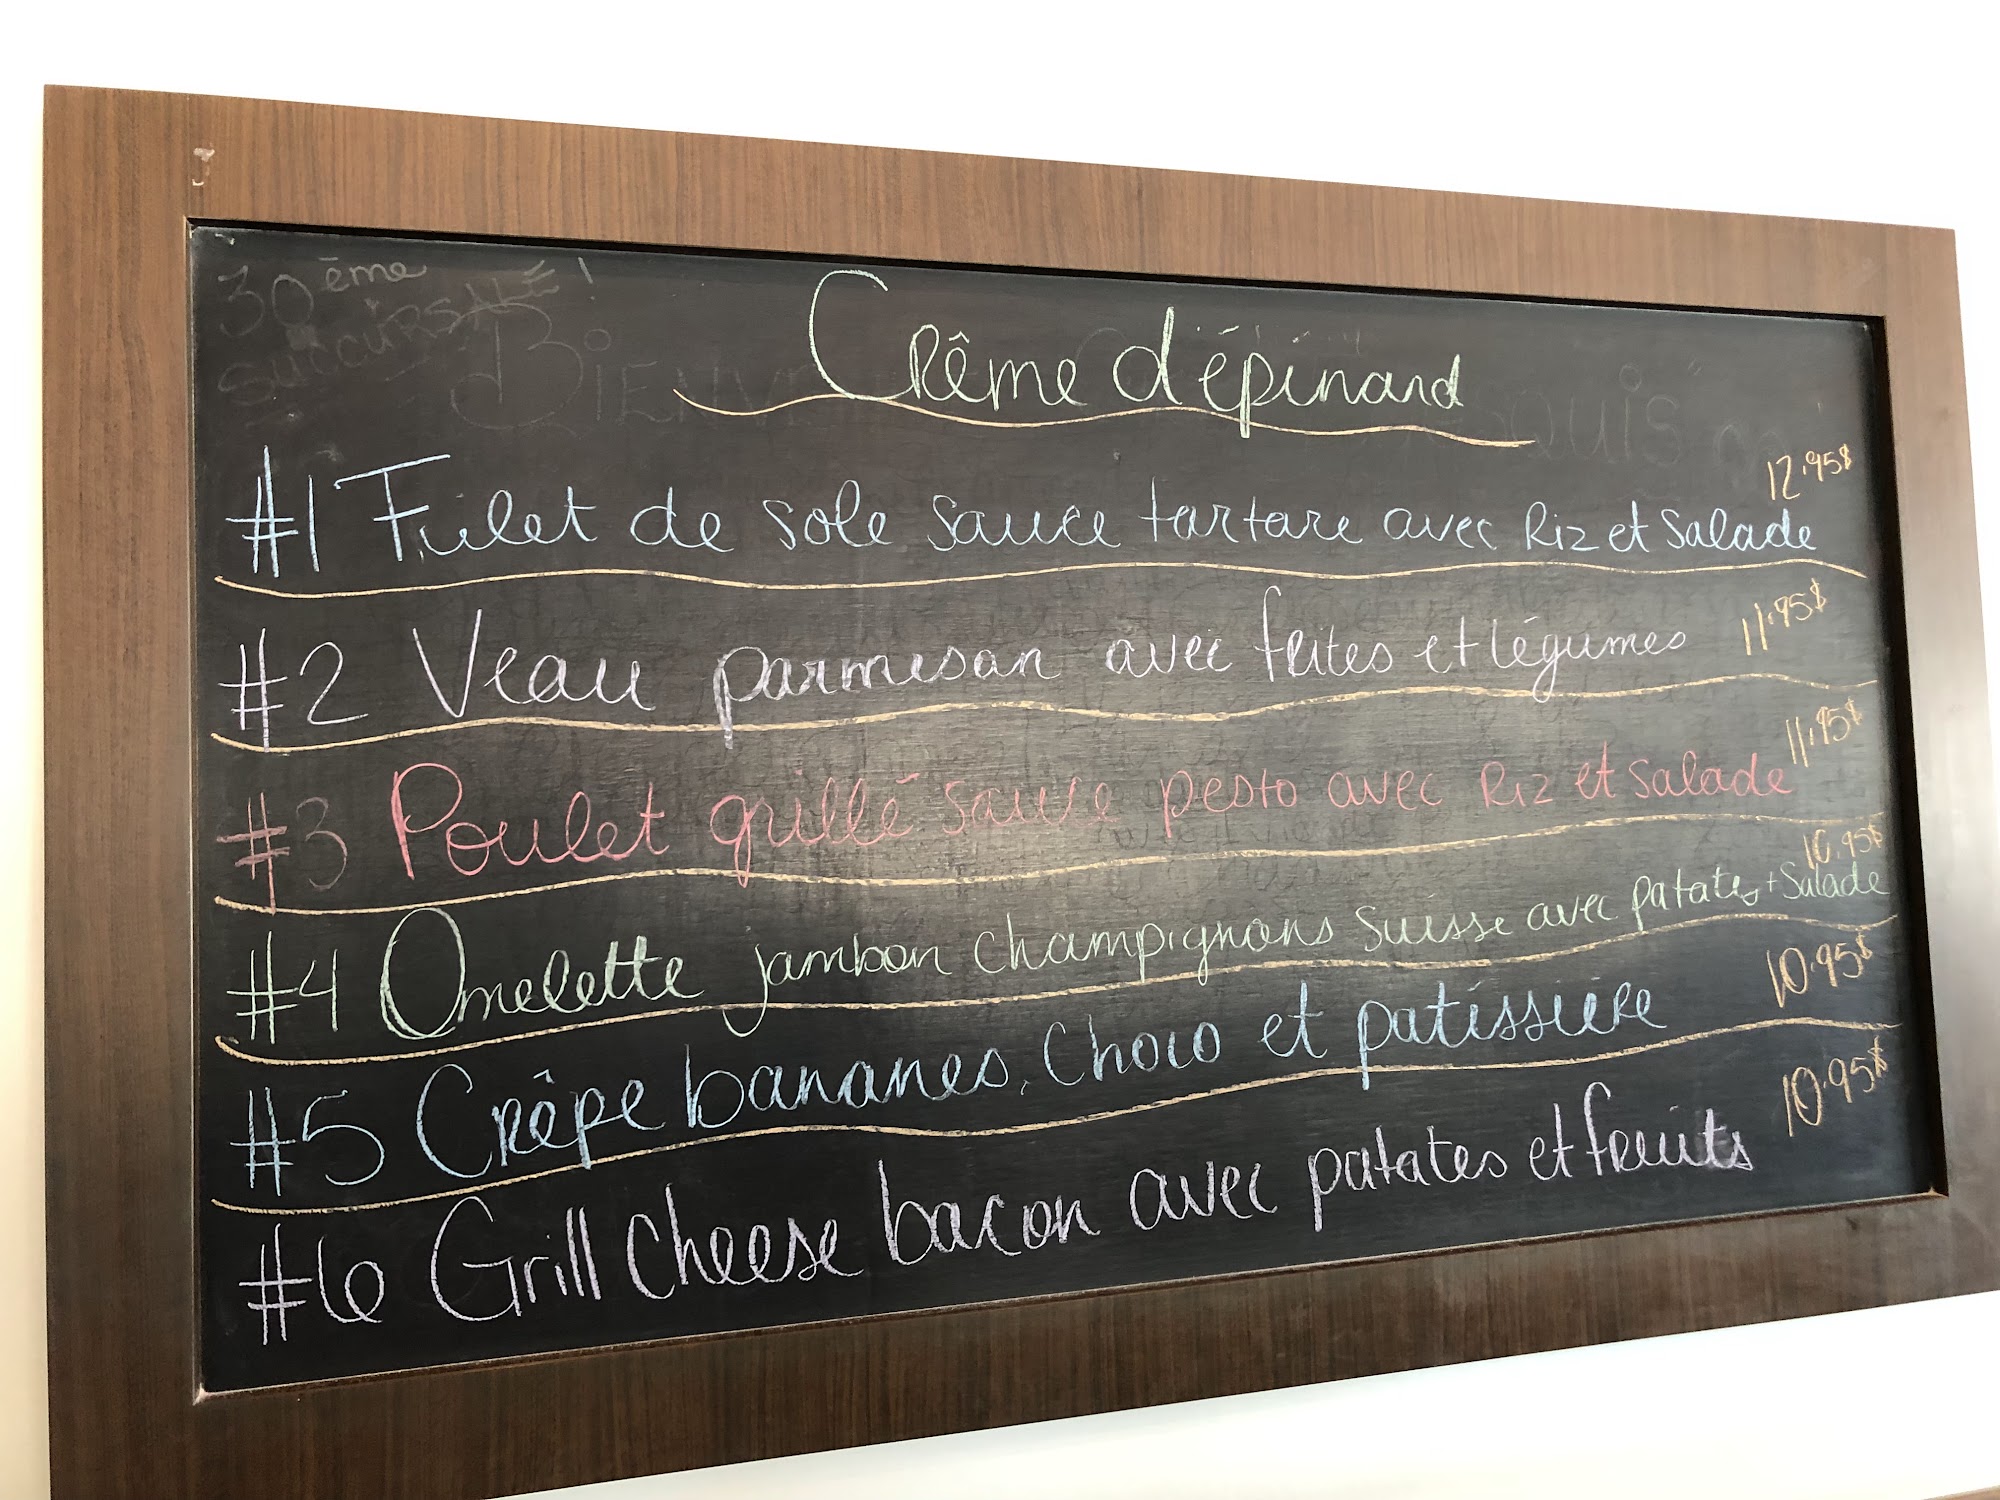 30ème
succursale!
Crême d'épinard
12.95$
#1 Filet de sole sauce tartare avec Riz et Salade
#2 Veau parmesan avec frites et légumes 11.95$
11.95$
#3 Poulet grillé sauce pesto avec Riz et Salade
10.95$
#4 Omelette jambon champignons Suisse avec patates + Salade
#5 Crêpe bananes, Choco et patissière 10.95$
#6 Grill Cheese bacon avec patates et fruits 10.95$